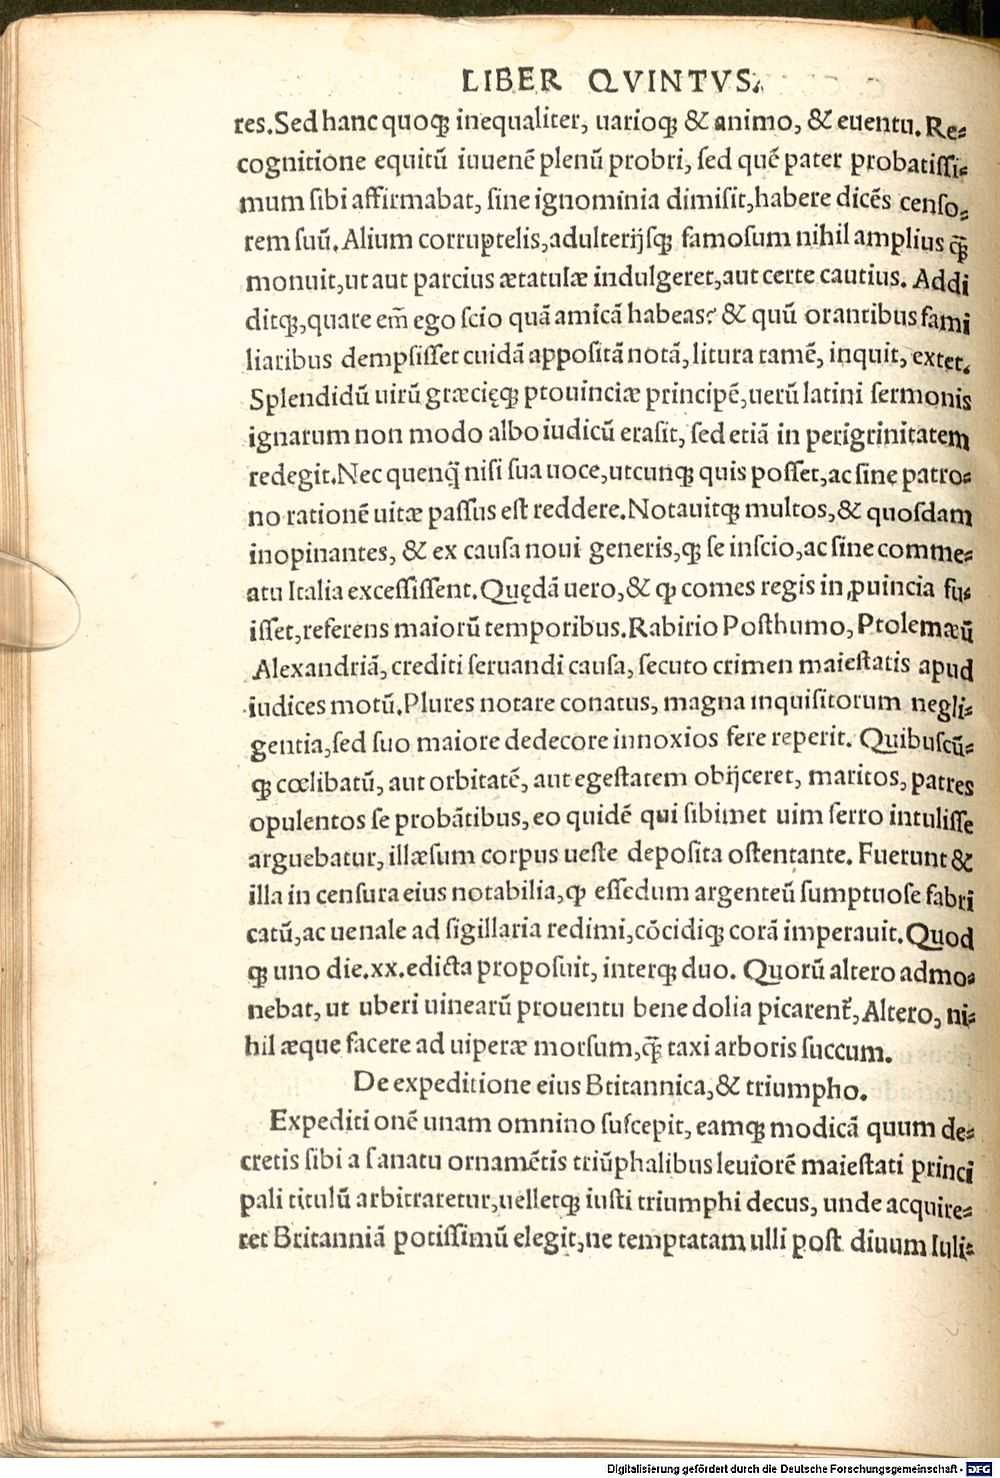 LIBER QVINTVS.
res. Sed hanc quoqꝫ inequaliter, uarioqꝫ & animo, & euentu. Re⸗
cognitione equitū iuuenē plenū probri, ſed quē pater probatiſſi⸗
mum ſibi affirmabat, ſine ignominia dimiſit, habere dicēs cenſo⸗
rem ſuū. Alium corruptelis, adulterijſqꝫ famoſum nihil amplius q̄ꝫ
monuit, ut aut parcius ætatulæ indulgeret, aut certe cautius. Addi
ditqꝫ, quare em̄ ego ſcio quā amicā habeas? & quū orantibus fami
liaribus dempſiſſet cuidā appoſitā notā, litura tamē, inquit, extet.
Splendidū uirū græcięqꝫ prouinciæ principē, uerū latini ſermonis
ignarum non modo albo iudicū eraſit, ſed etiā in perigrinitatem
redegit. Nec quenq̄ niſi ſua uoce, utcunqꝫ quis poſſet, ac ſine patro⸗
no rationē uitæ paſſus eſt reddere. Notauitqꝫ multos, & quoſdam
inopinantes, & ex cauſa noui generis, qꝫ ſe inſcio, ac ſine comme⸗
atu Italia exceſſiſſent. Quędā uero, & ꝙ comes regis in ꝓuincia fu⸗
iſſet, referens maiorū temporibus. Rabirio Poſthumo, Ptolemæū
Alexandriā, crediti ſeruandi cauſa, ſecuto crimen maieſtatis apud
iudices motū. Plures notare conatus, magna inquiſitorum negli⸗
gentia, ſed ſuo maiore dedecore innoxios fere reperit. Quibuſcū⸗
qꝫ cœlibatū, aut orbitatē, aut egeſtatem obijceret, maritos, patres
opulentos ſe probātibus, eo quidē qui ſibimet uim ferro intuliſſe
arguebatur, illæſum corpus ueſte depoſita oſtentante. Fuerunt &
illa in cenſura eius notabilia, ꝙ eſſedum argenteū ſumptuoſe fabri
catū, ac uenale ad ſigillaria redimi, cōcidiqꝫ corā imperauit. Quod
qꝫ uno die .xx. edicta propoſuit, interqꝫ duo. Quorū altero admo⸗
nebat, ut uberi uinearū prouentu bene dolia picarent᷑, Altero, ni⸗
hil æque facere ad uiperæ morſum, q̄ꝫ taxi arboris ſuccum.
De expeditione eius Britannica, & triumpho.
Expediti onē unam omnino ſuſcepit, eamqꝫ modicā quum de⸗
cretis ſibi a ſanatu ornamētis triūphalibus leuiorē maieſtati princi
pali titulū arbitraretur, uelletqꝫ iuſti triumphi decus, unde acquire⸗
ret Britanniā potiſſimū elegit, ne temptatam ulli poſt diuum Iuli⸗
Digitalisierung gefördert durch die Deutsche Forschungsgemeinschaft - DFG